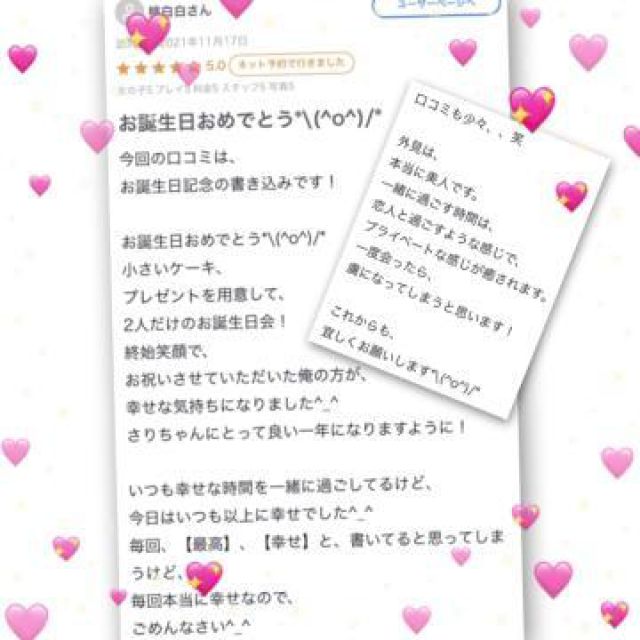 桃白白さん
ユーザーページへ
2021年11月17日
★★★★★ 5.0 ネット予約で行きました
女の子5 プレイ5 料金5 スタッフ5 写真5
お誕生日おめでとう*\(^o^)/*
今回の口コミは、
お誕生日記念の書き込みです！
お誕生日おめでとう*\(^o^)/*
小さいケーキ、
プレゼントを用意して、
2人だけのお誕生日会！
終始笑顔で、
お祝いさせていただいた俺の方が、
幸せな気持ちになりました^_^
さりちゃんにとって良い一年になりますように！
いつも幸せな時間を一緒に過ごしてるけど、
今日はいつも以上に幸せでした^_^
毎回、【最高】、【幸せ】と、書いてると思ってしま
うけど、
毎回本当に幸せなので、
ごめんなさい^_^
口コミも少々、、笑
外見は、
本当に美人です。
一緒に過ごす時間は、
恋人と過ごすような感じで、
プライベートな感じが癒されます。
一度会ったら、
虜になってしまうと思います！
これからも、
宜しくお願いします*\(^o^)/*